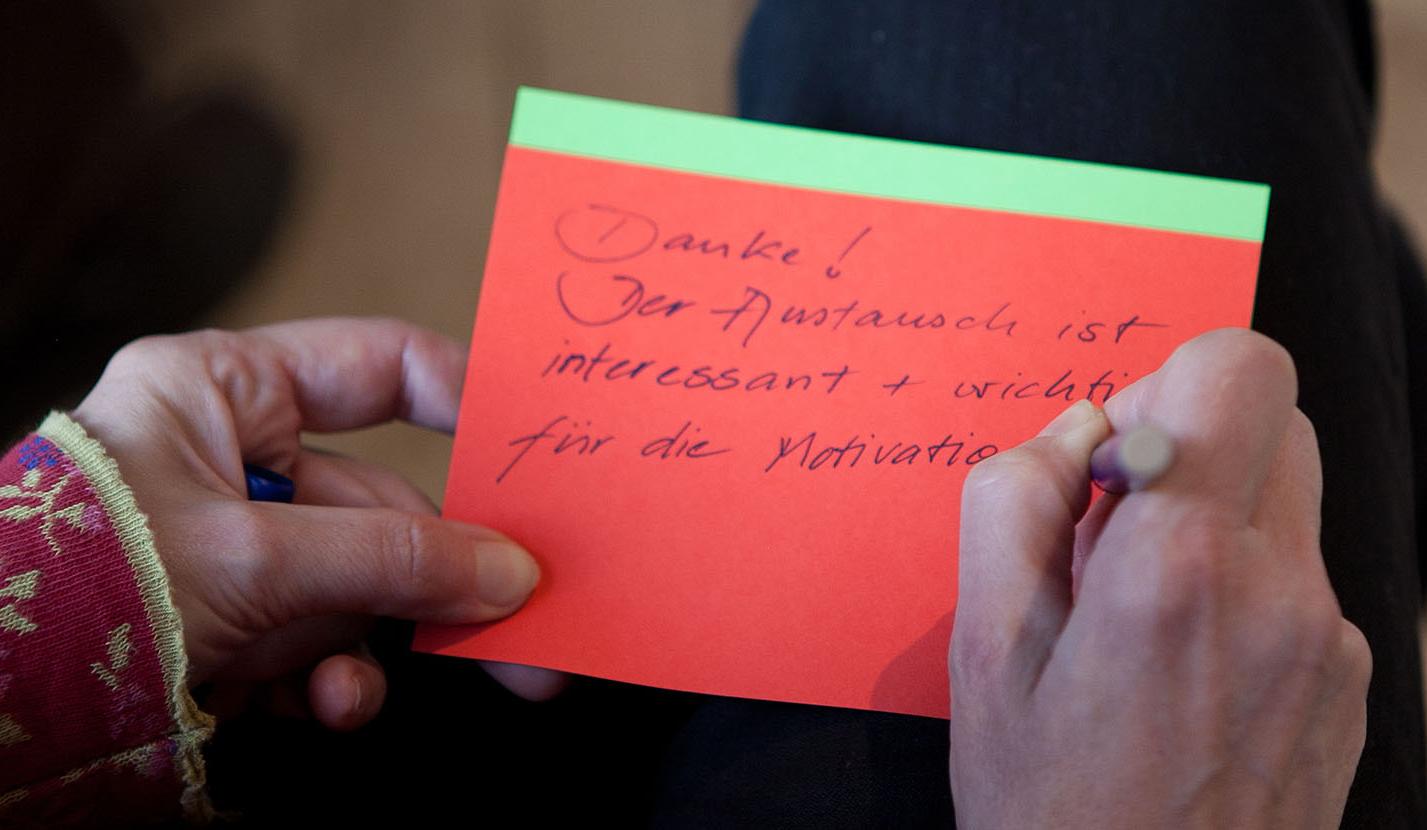 Danke!
Der Austausch ist
interessant + wichti
für die Motivatio